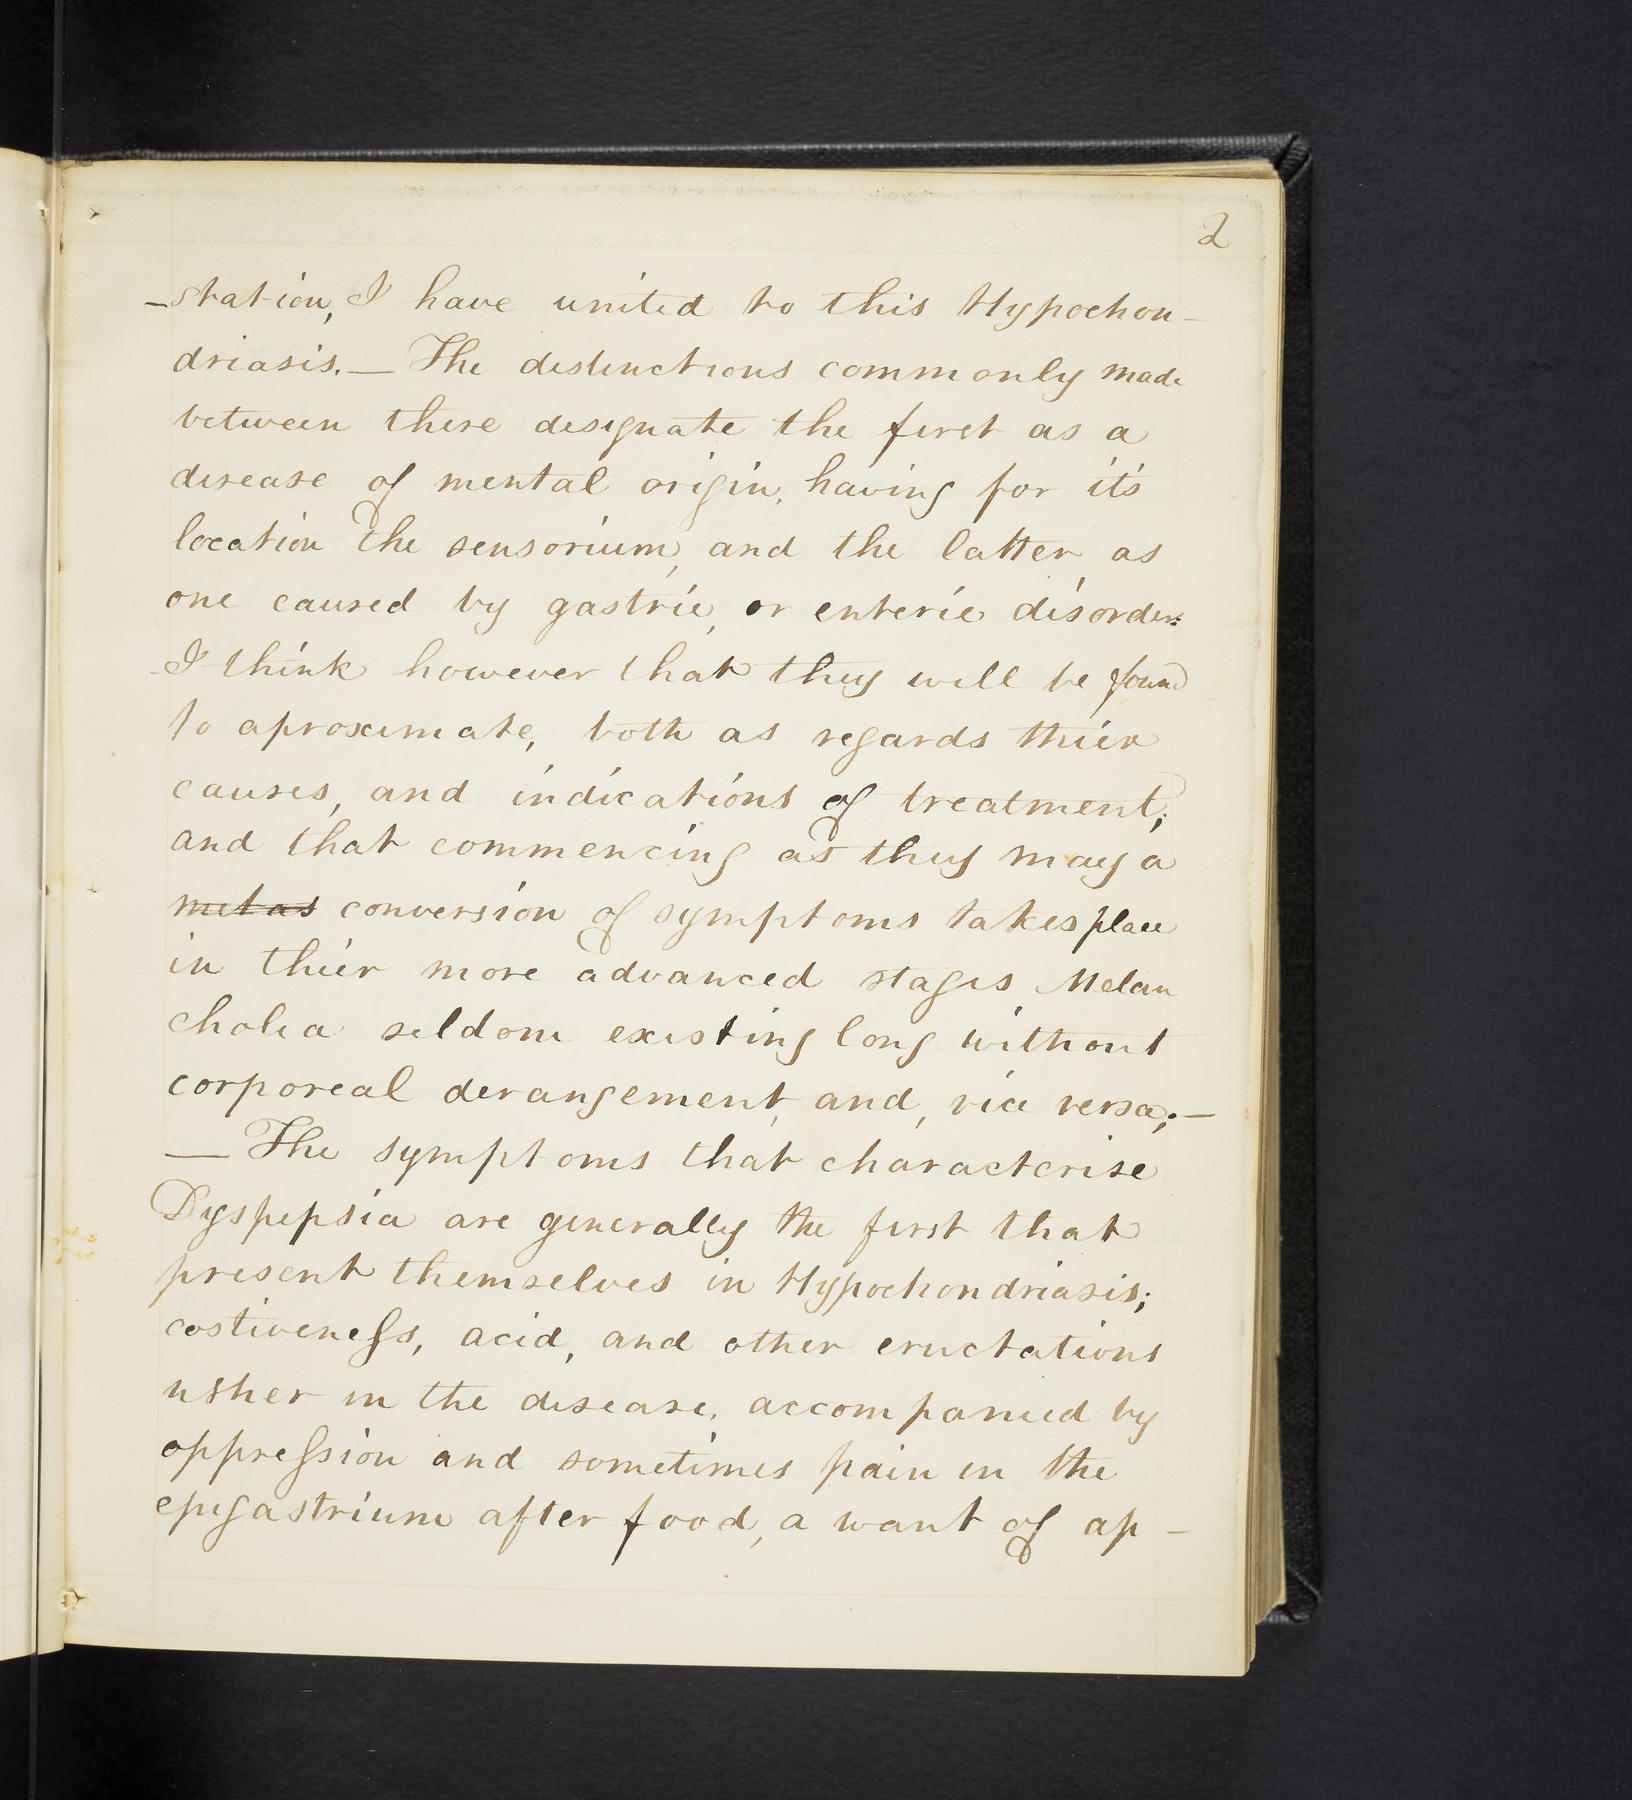 2
-station, I have united to this Hypochon-
driasis.— The distinctions commonly made
between these designate the first as a
disease of mental origin, having for it's
location the sensorium, and the latter as
one caused by gastric, or enteric disorder:
I think however that they will be found
to aproximate, both as regards thier
causes, and indications of treatment;
and that commencing as they may a
metas conversion of symptoms takes place
in thier more advanced stages, Melan
cholia seldom existing long without
corporeal derangement, and, vice versa;—
— The symptoms that characterise
Dyspepsia are generally the first that
present themselves in Hypochondriasis;
costiveness, acid, and other eructations
usher in the disease, accompanied by
oppression and sometimes pain in the
epigastrium after food, a want of ap-